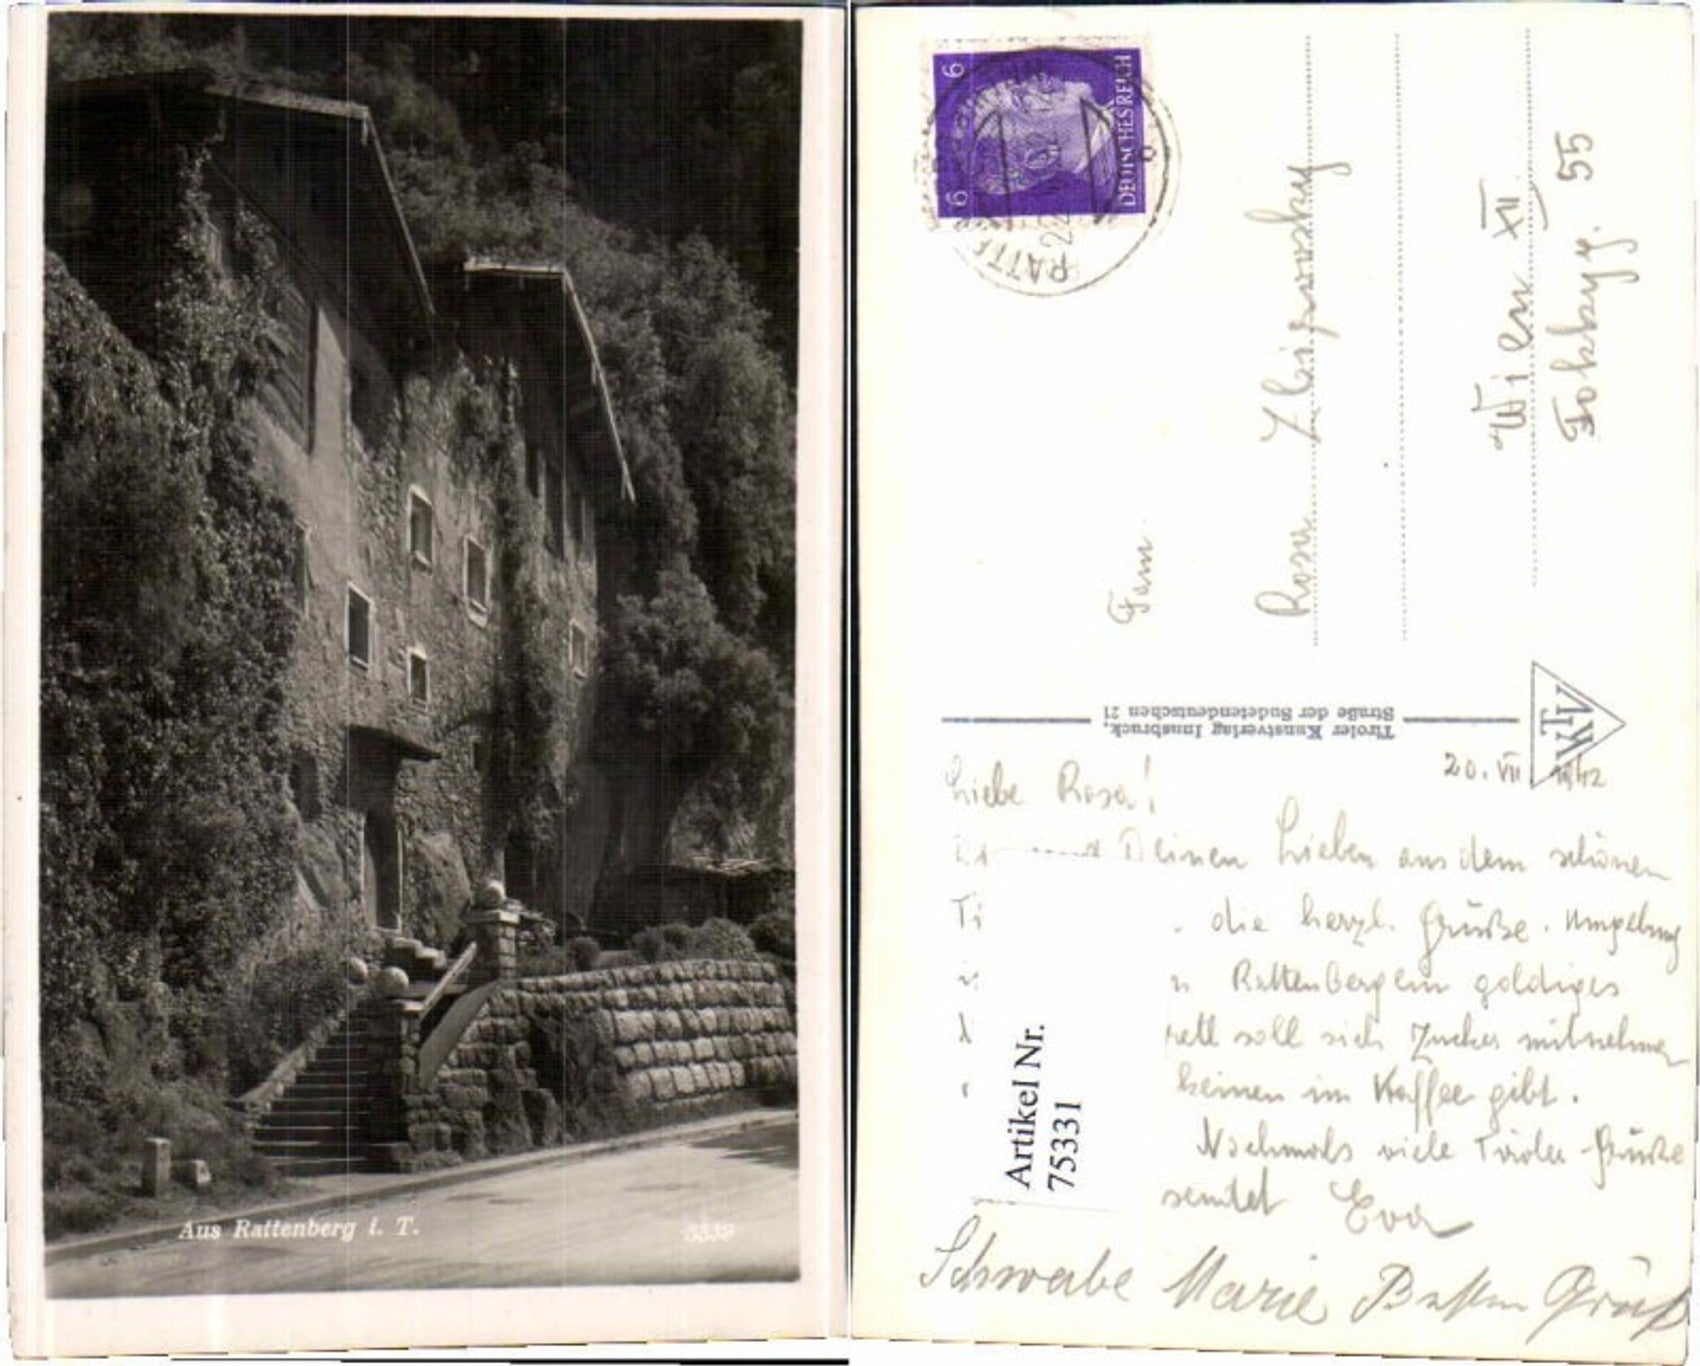 Aus Rattenberg i. T.
5339
6 6
DEUTSCHES REICH
RATTE
Fam.
Rosa
Wien XII
55
Tiroler Kunstverlag Innsbruck,
Straße der Sudetendeutschen 21
TKV
20. VII 1942
Liebe Rosa!
und Deinen Lieben aus dem schönen
Ti . die herzl. Grüße. Umgebung
Rattenberg ein goldiges
soll sich Zucker mitnehmen
keinen im Kaffee gibt.
Nochmals viele Tiroler-Grüße
sendet Eva
Artikel Nr.
75331
Schwabe Marie Gruß